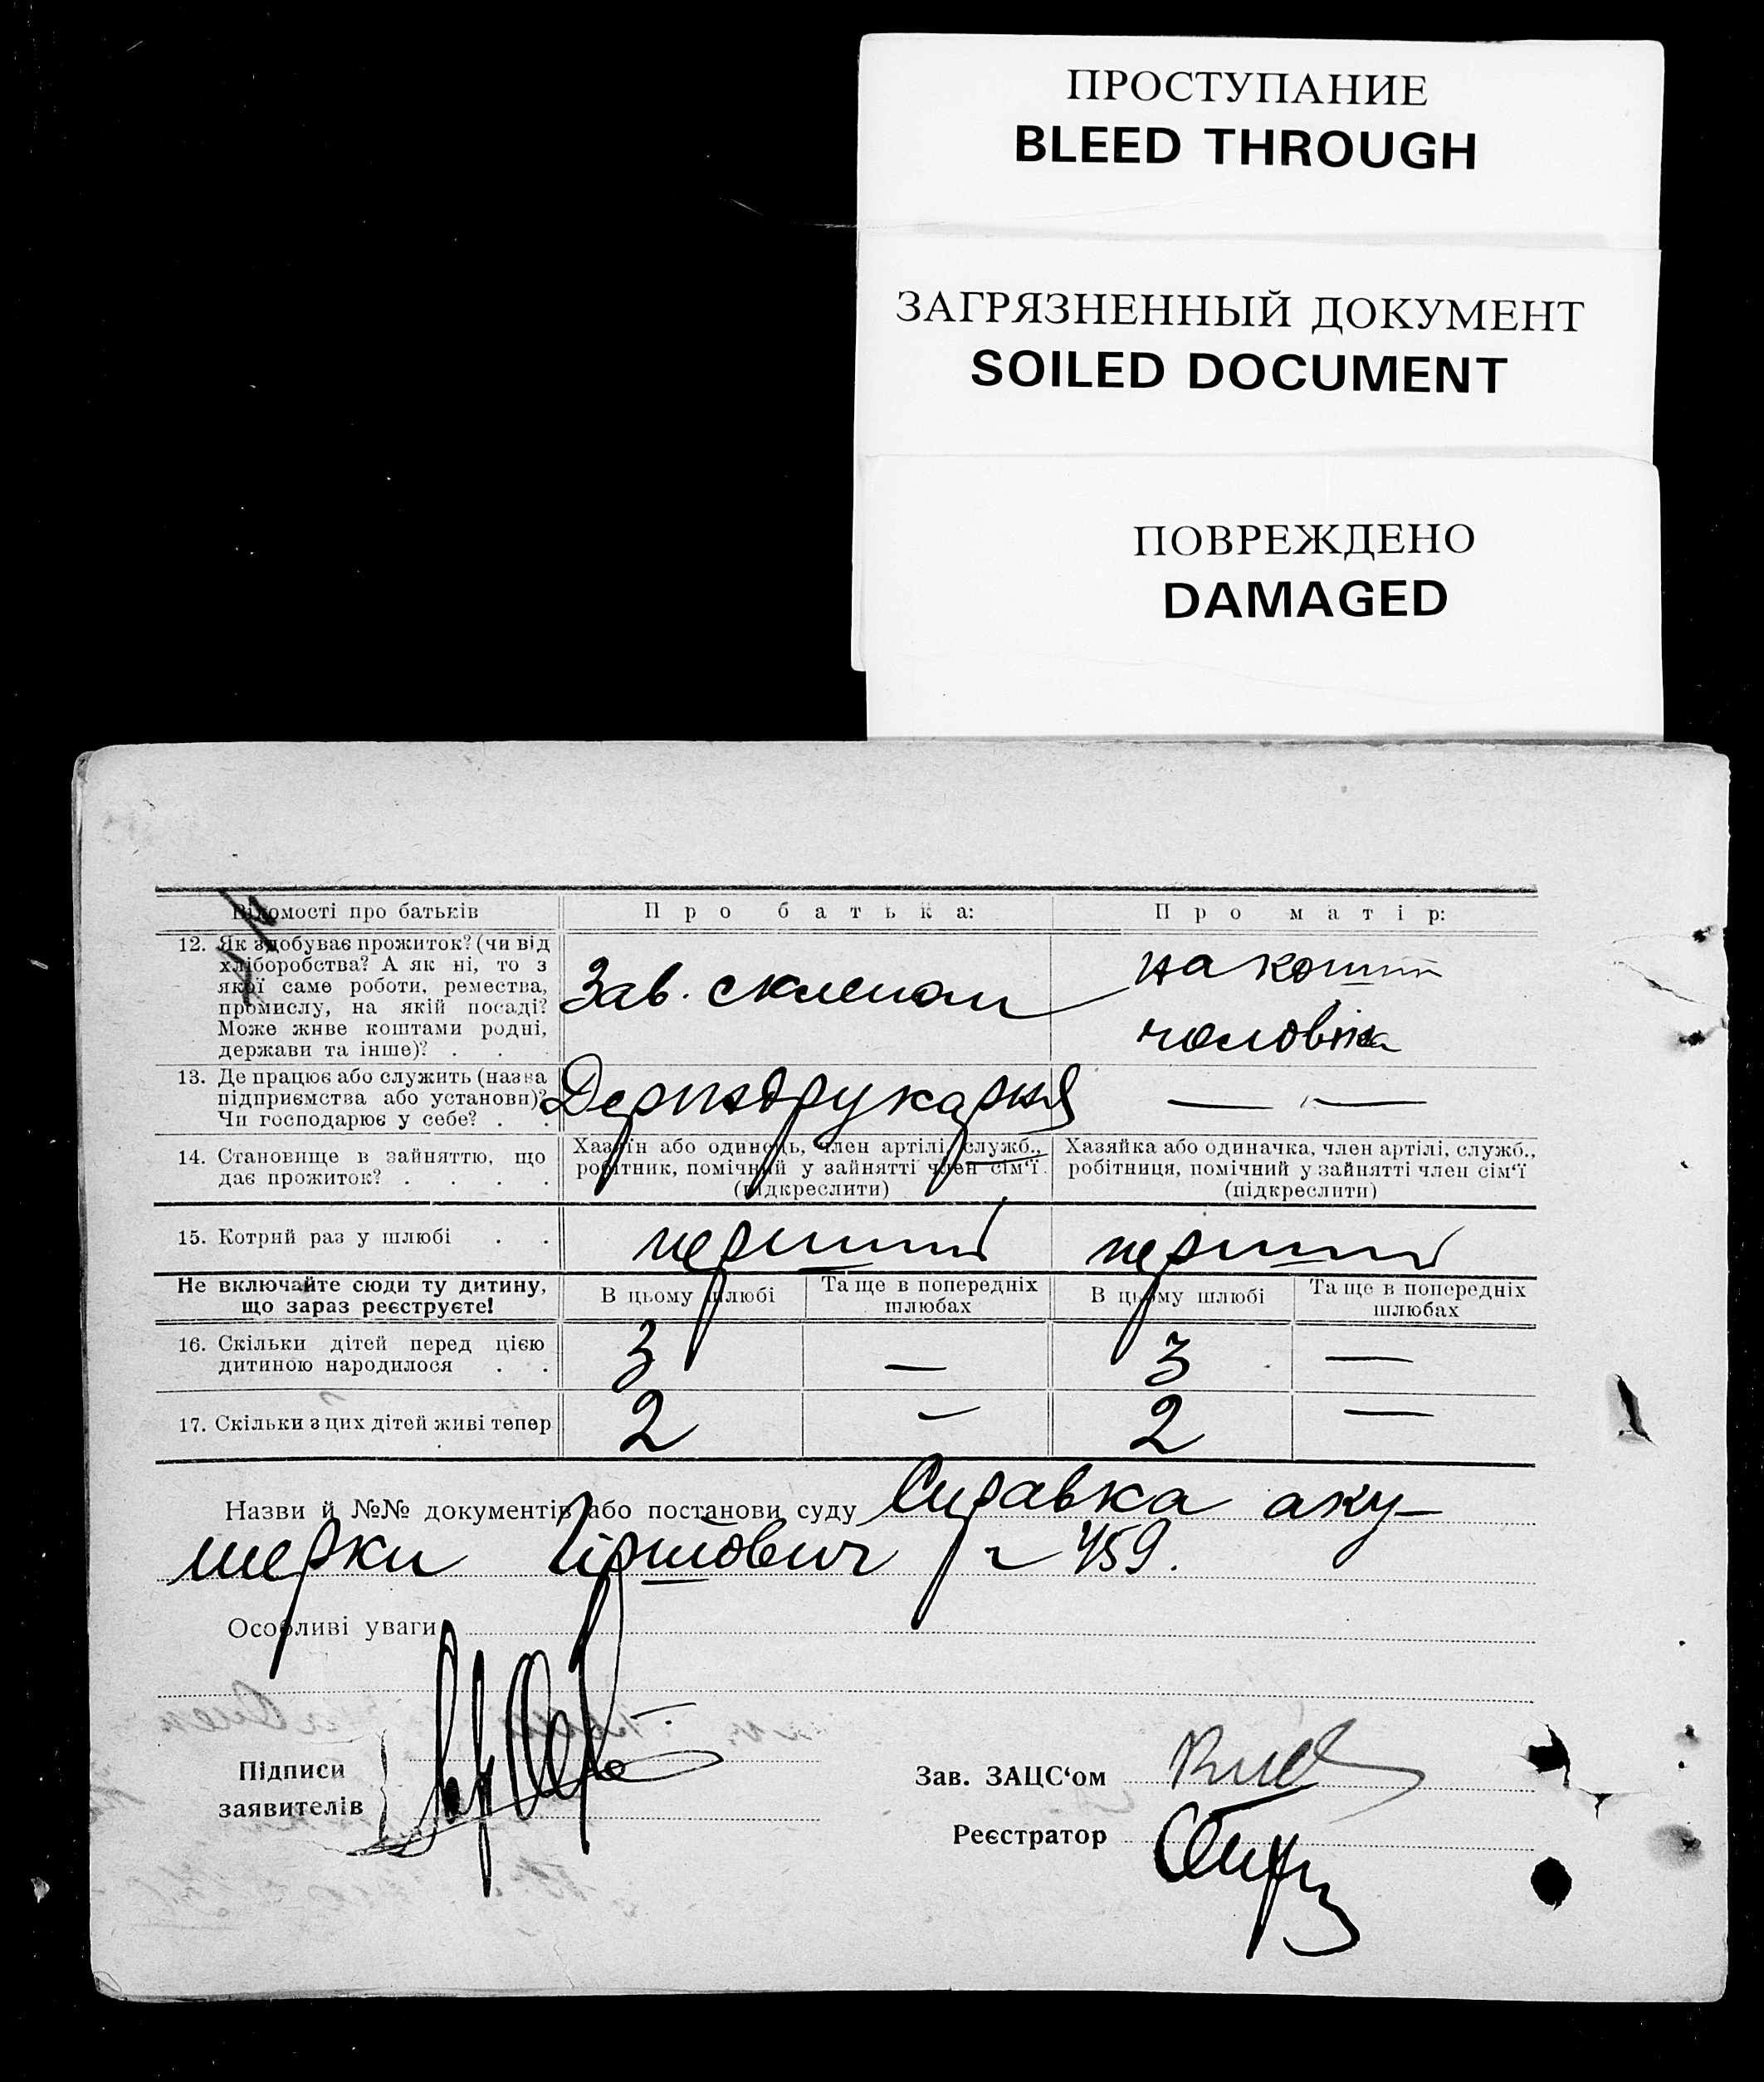 ПРОСТУПАНИЕ
BLEED THROUGH
ЗАГРЯЗНЕННЫЙ ДОКУМЕНТ
SOILED DOCUMENT
ПОВРЕЖДЕНО
DAMAGED
Відомості про батьків
Про батька:
Про матір:
12. Як здобуває прожиток? (чи від
хліборобства? А як ні, то з
якої саме роботи, ремества,
промислу, на якій посаді?
Може живе коштами родні,
держави та інше)? . .
Зав. склепом
на кошти
чоловіка
13. Де працює або служить (назва
підприємства або установи)?
Чи господарює у себе? . .
Держдрукарня
— „ —
14. Становище в зайняттю, що
дає прожиток? . . . .
Хазяїн або одинець, член артілі, служб.,
робітник, помічний у зайнятті член сім‘ї.
(підкреслити)
Хазяйка або одиначка, член артілі, служб.,
робітниця, помічний у зайнятті член сім‘ї
(підкреслити)
15. Котрий раз у шлюбі . .
перший
перший
Не включайте сюди ту дитину,
що зараз реєструєте!
В цьому шлюбі
Та ще в попередніх
шлюбах
В цьому шлюбі
Та ще в попередніх
шлюбах
16. Скільки дітей перед цією
дитиною народилося . .
3
—
3
—
17. Скільки з цих дітей живі тепер
2
—
2
—
Назви й №№ документів або постанови суду Справка аку-
шерки Гіршович 459.
Особливі уваги
Підписи
заявителів
Зав. ЗАЦС‘ом
Реєстратор